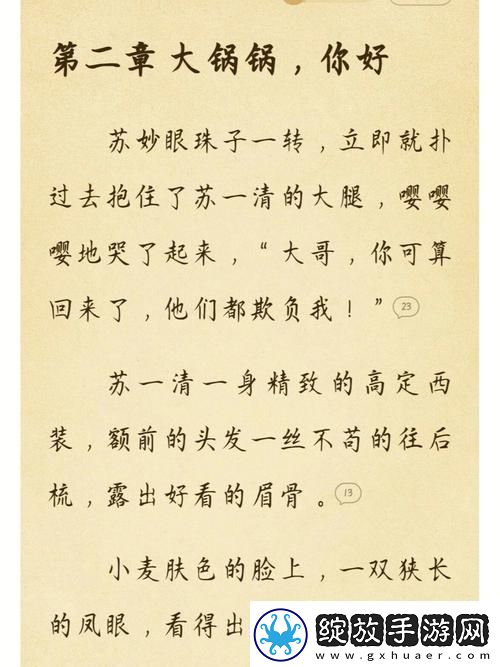 第二章 大锅锅，你好
苏妙眼珠子一转，立即就扑
过去抱住了苏一清的大腿，嘤嘤
嘤地哭了起来，“大哥，你可算
回来了，他们都欺负我！”23
苏一清一身精致的高定西
装，额前的头发一丝不苟的往后
梳，露出好看的眉骨。13
小麦肤色的脸上，一双狭长
的凤眼，看得出
绽放手游网
www.gxhuaer.com